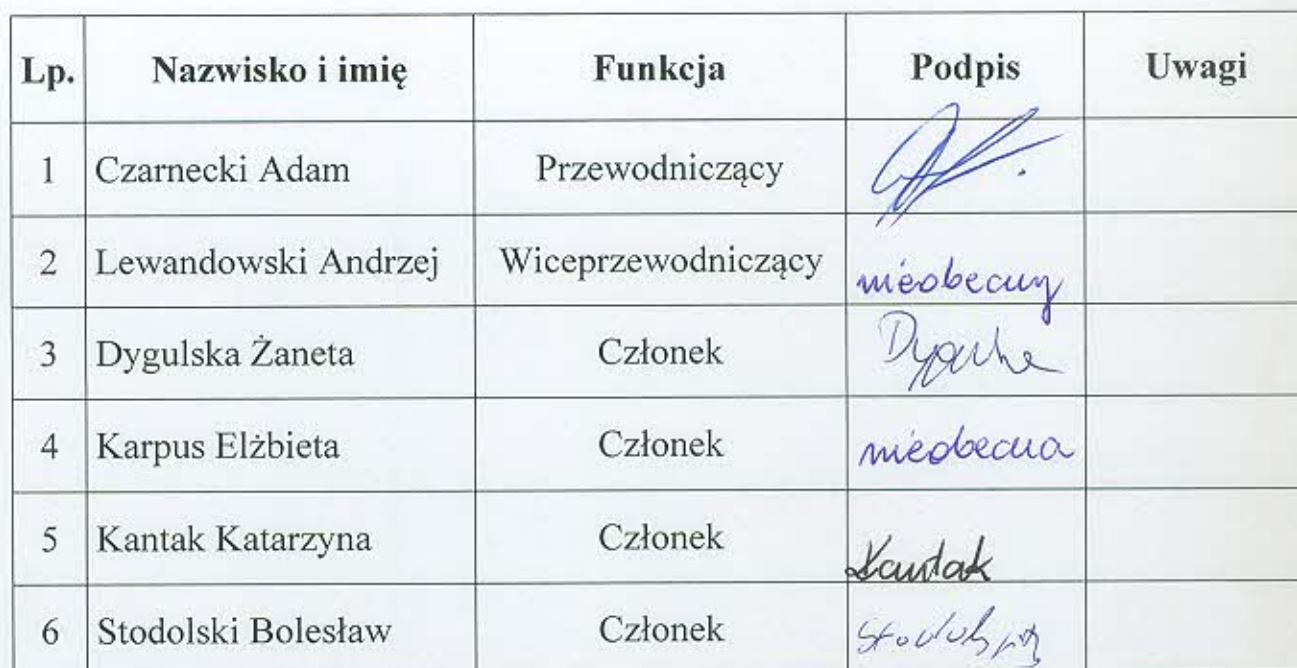 Lp. Nazwisko i imię Funkcja Podpis Uwagi
1 Czarnecki Adam Przewodniczący
2 Lewandowski Andrzej Wiceprzewodniczący nieobecny
3 Dygulska Żaneta Członek
4 Karpus Elżbieta Członek nieobecna
5 Kantak Katarzyna Członek Kantak
6 Stodolski Bolesław Członek